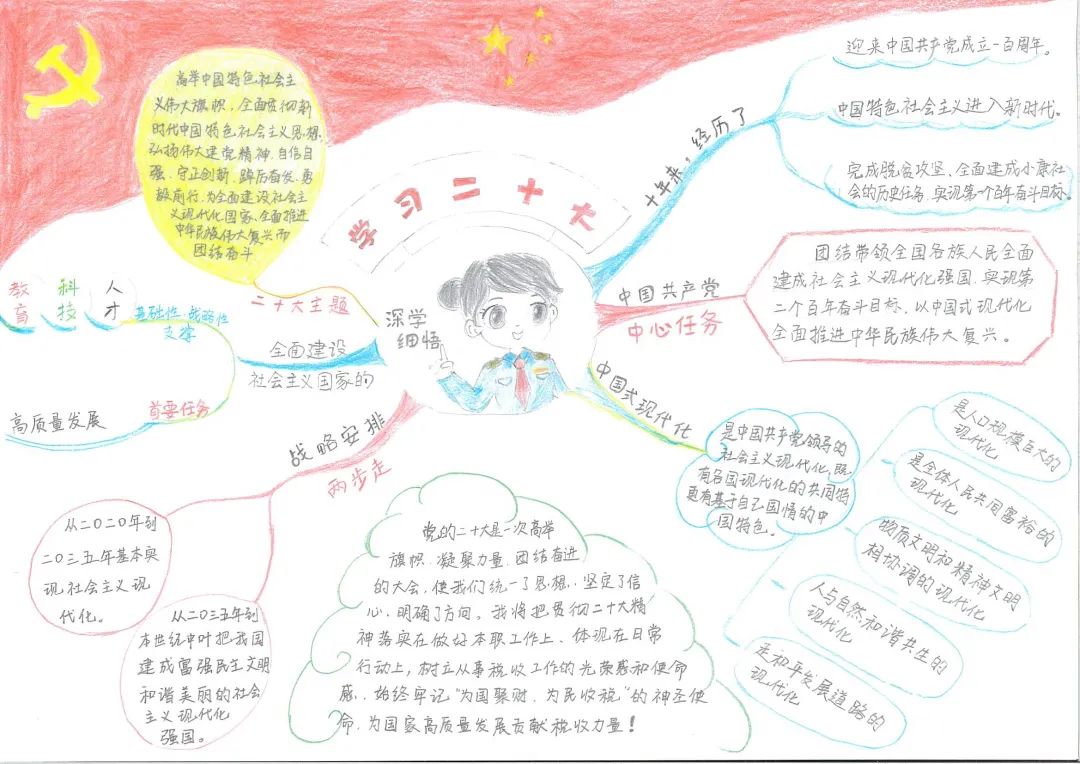 学习二十大
深学
细悟
二十大主题
高举中国特色社会主
义伟大旗帜、全面贯彻新
时代中国特色社会主义思想,
弘扬伟大建党精神、自信自
强、守正创新、踔厉奋发、勇
毅前行、为全面建设社会主
义现代化国家、全面推进
中华民族伟大复兴而
团结奋斗
十年来,经历了
迎来中国共产党成立一百周年。
中国特色社会主义进入新时代。
完成脱贫攻坚、全面建成小康社
会的历史任务,实现第一个百年奋斗目标。
中国共产党
中心任务
团结带领全国各族人民全面
建成社会主义现代化强国、实现第
二个百年奋斗目标,以中国式现代化
全面推进中华民族伟大复兴。
中国式现代化
是中国共产党领导的
社会主义现代化,既
有各国现代化的共同特
更有基于自己国情的中
国特色。
是人口规模巨大的
现代化
是全体人民共同富裕的
现代化
物质文明和精神文明
相协调的现代化
人与自然和谐共生的
现代化
走和平发展道路的
现代化
全面建设
社会主义国家的
基础性、战略性
支撑
教育
科技
人才
首要任务
高质量发展
战略安排
两步走
从二〇二〇年到
二〇三五年基本实
现社会主义现
代化。
从二〇三五年到
本世纪中叶把我国
建成富强民主文明
和谐美丽的社会
主义现代化
强国。
党的二十大是一次高举
旗帜、凝聚力量、团结奋进
的大会,使我们统一了思想、坚定了信
心、明确了方向。我将把贯彻二十大精
神落实在做好本职工作上、体现在日常
行动上,树立从事税收工作的光荣感和使命
感、始终牢记“为国聚财、为民收税”的神圣使
命,为国家高质量发展贡献税收力量!